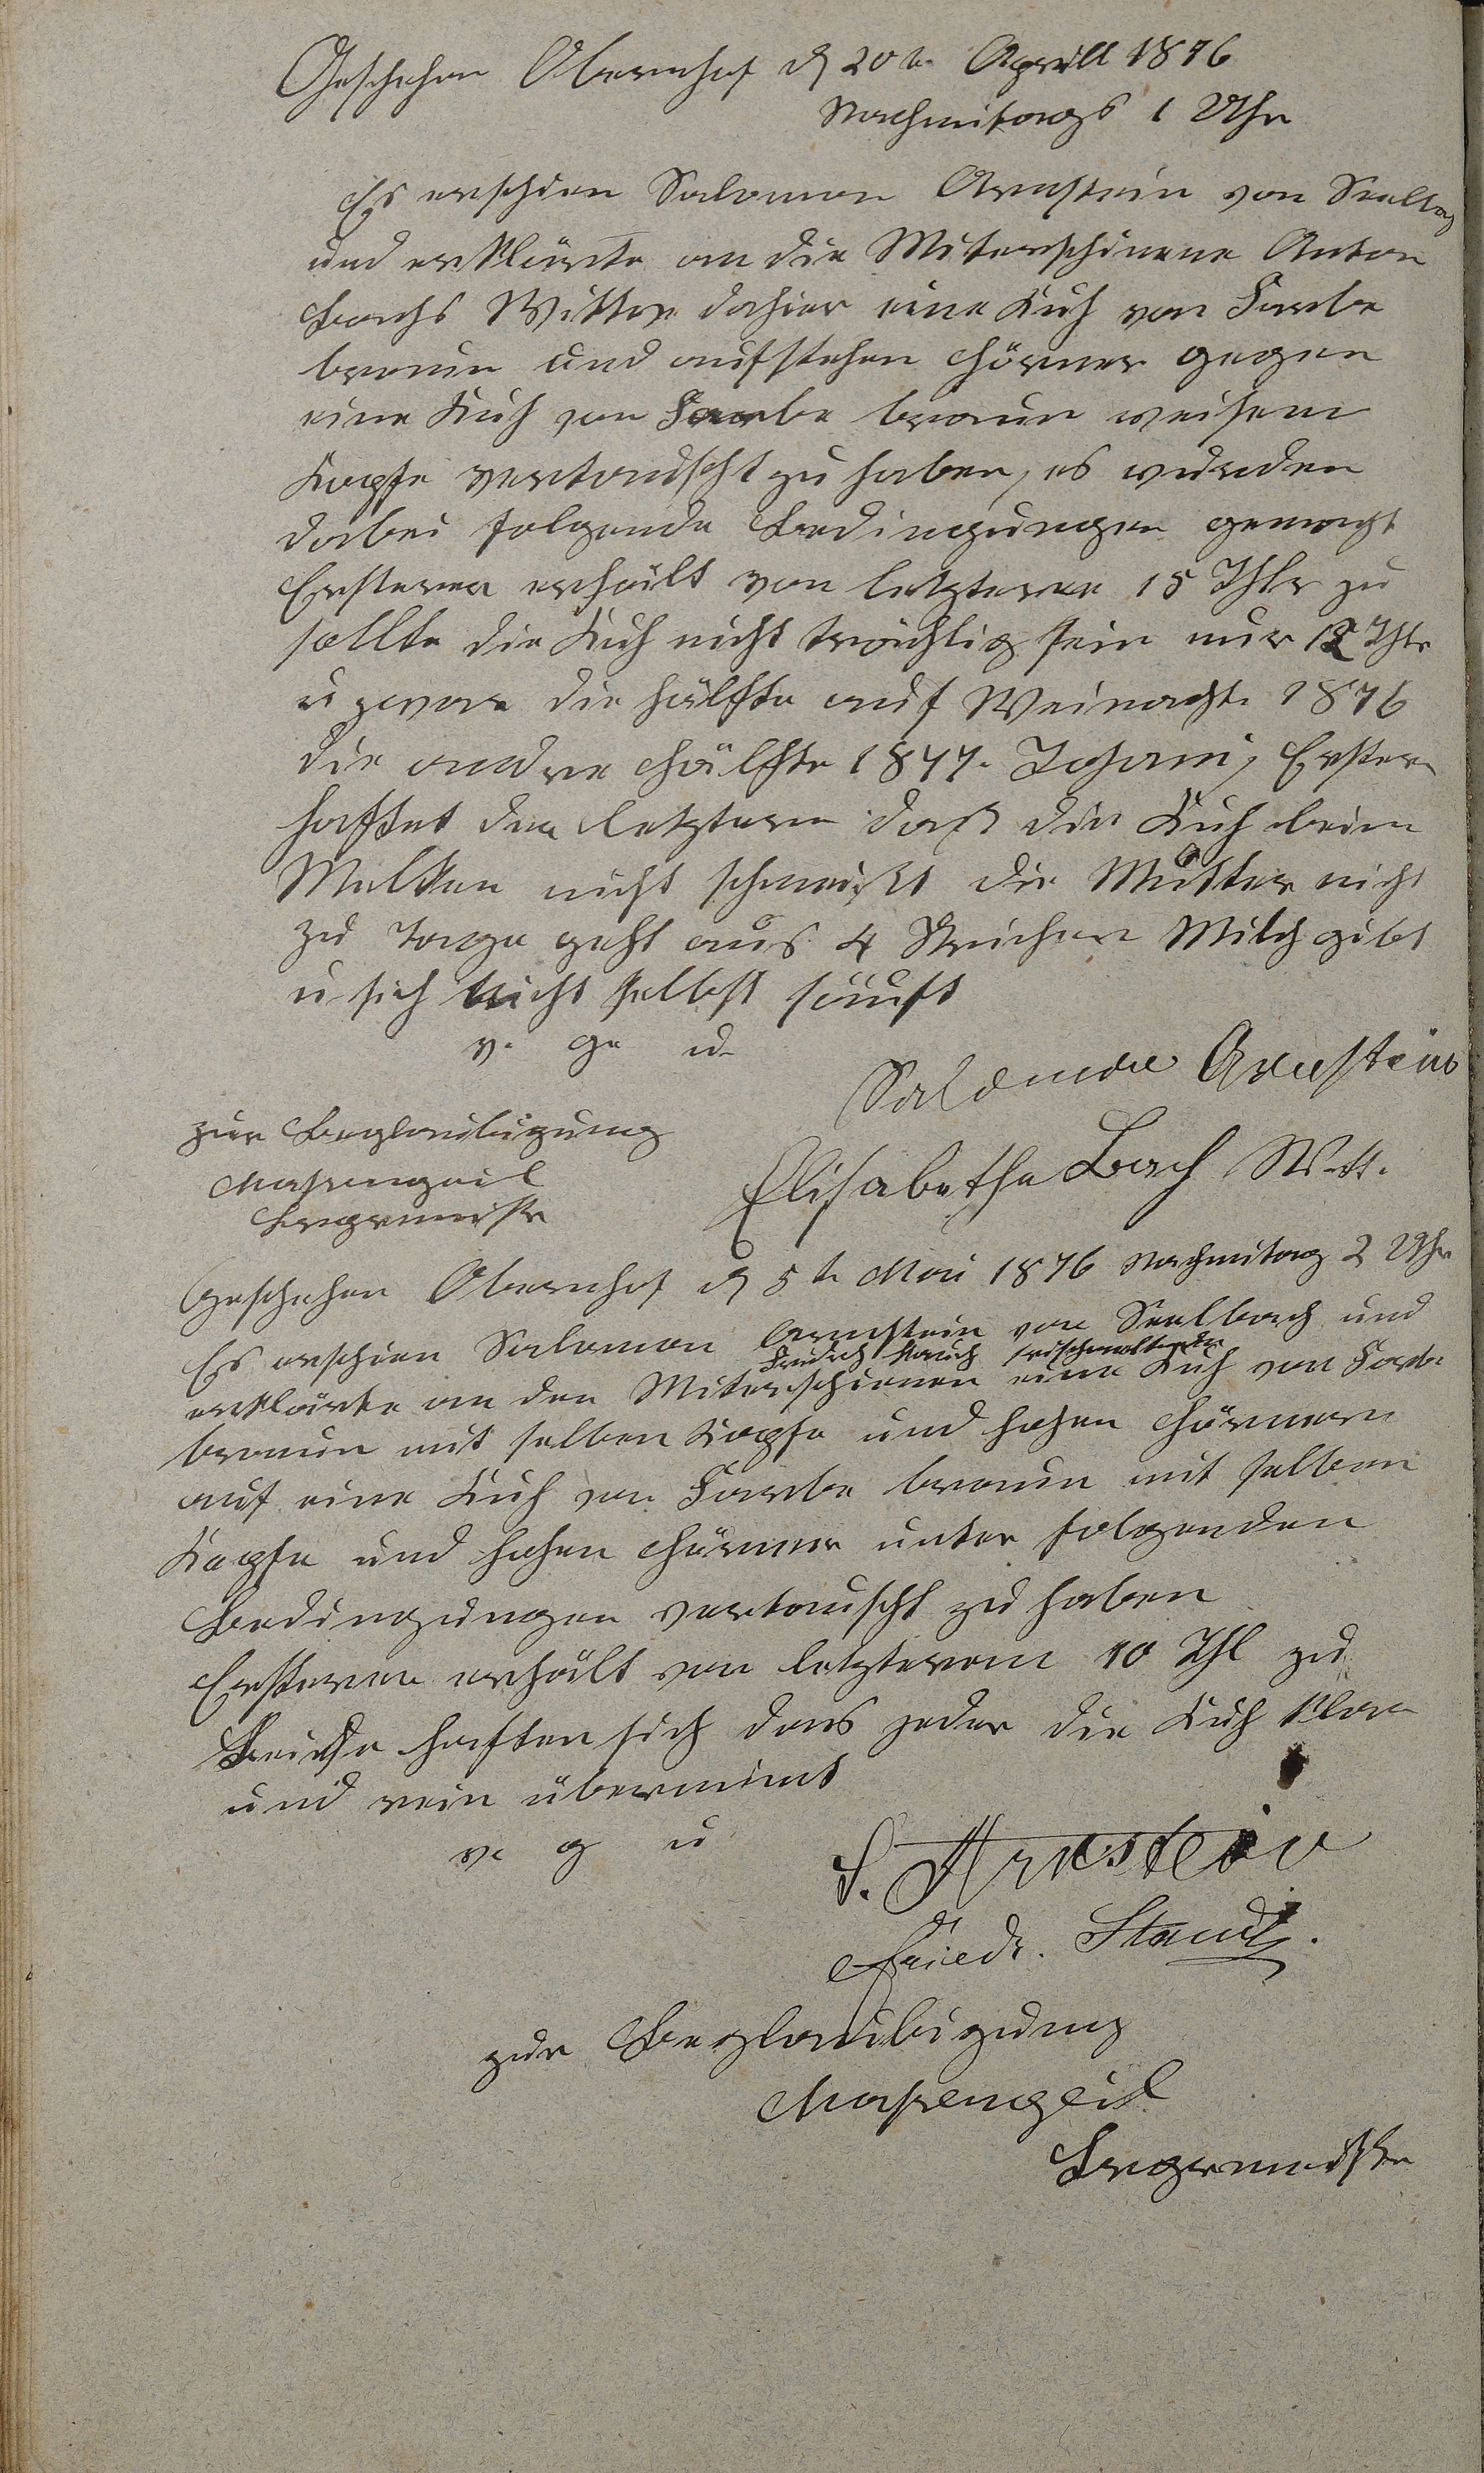 Geschehen Obernhof d 20t. Aprill 1876
Nachmitags 1 Uhr
Es erschien Salomon Arnstein von Seelbag
und erklärte an die Miterschinene Anton
Bachs Wittwe dahier eine Kuh von Farbe
braun und aufstehen Hörner gegen
eine Kuh von Farbe braun weisem
Kopfe vertauscht zu haben, es wurden
dabei folgende Bedingungen gemacht
Ersterer erhält von letzterer 15 Thlr zu
sollte die Kuh nicht trächtig sein nur 12 Thlr
u zwar die hälfte auf Weinacht 1876
die andre Hälfte 1877. Johani, Erster
haftet der letztern daß die Kuh beim
Melken nicht schmeißt die Mutter nicht
zu Tage geht aus 4 Strichen Milch gibt
u sich nicht selbst säuft
v. g. u.
Salomon Arnstein
zur Beglaubigung
Elisabetha Bach Witt.
Massengeil
Bürgermeistr
Geschehen Obernhof d 5t Mai 1876 Nachmitag 2 Uhr
Es erschien Salomon Arnstein von Seelbach und
Friedrich frischmelkende
erklärte an den Miterschienen eine Kuh von Farbe
braun mit selben Kopfe und hohen Hörnern
auf eine Kuh von Farbe braun mit selben
Kopfe und hohen Hörner unter folgenden
Bedingungen vertauscht zu haben
Ersterer erhält von letzterem 10 Thl zu
Beide haften sich das jeder die Kuh klar
und rein übernimt
v. g u
S. Arnstein
Friedr.
zur Beglaubigung
Massengeil
Bürgermeistr